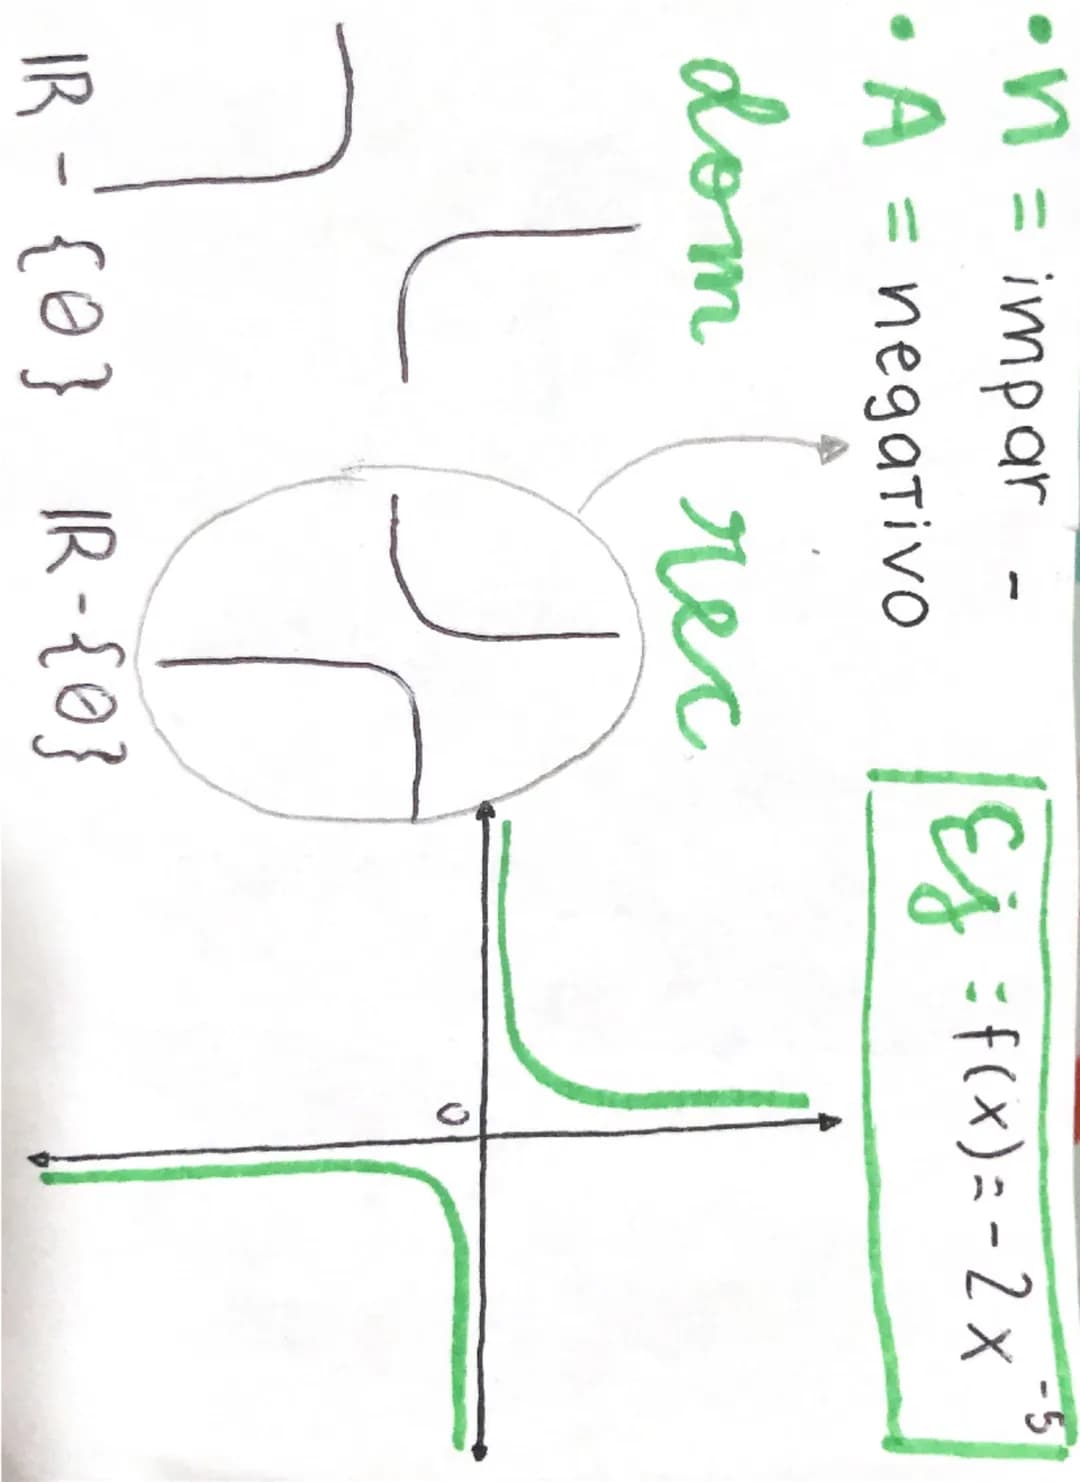 • n = impar -
• A = negativo
dom rec
IR - {0} IR - {0}
Ej = f(x) = - 2x⁻⁵
0